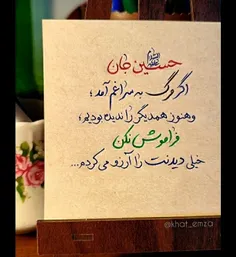 حسین جان
اگر مرگ به سراغم آمد؛
و هنوز همدیگر را ندیده بودیم؛
فراموش نکن
خیلی دیدنت را آرزو می‌کردم...
@khat_emza